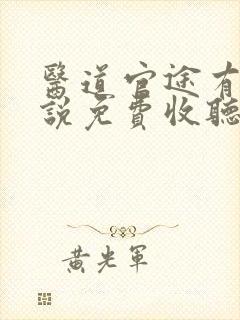 醫道官途有
說免費收聽
黃光軍